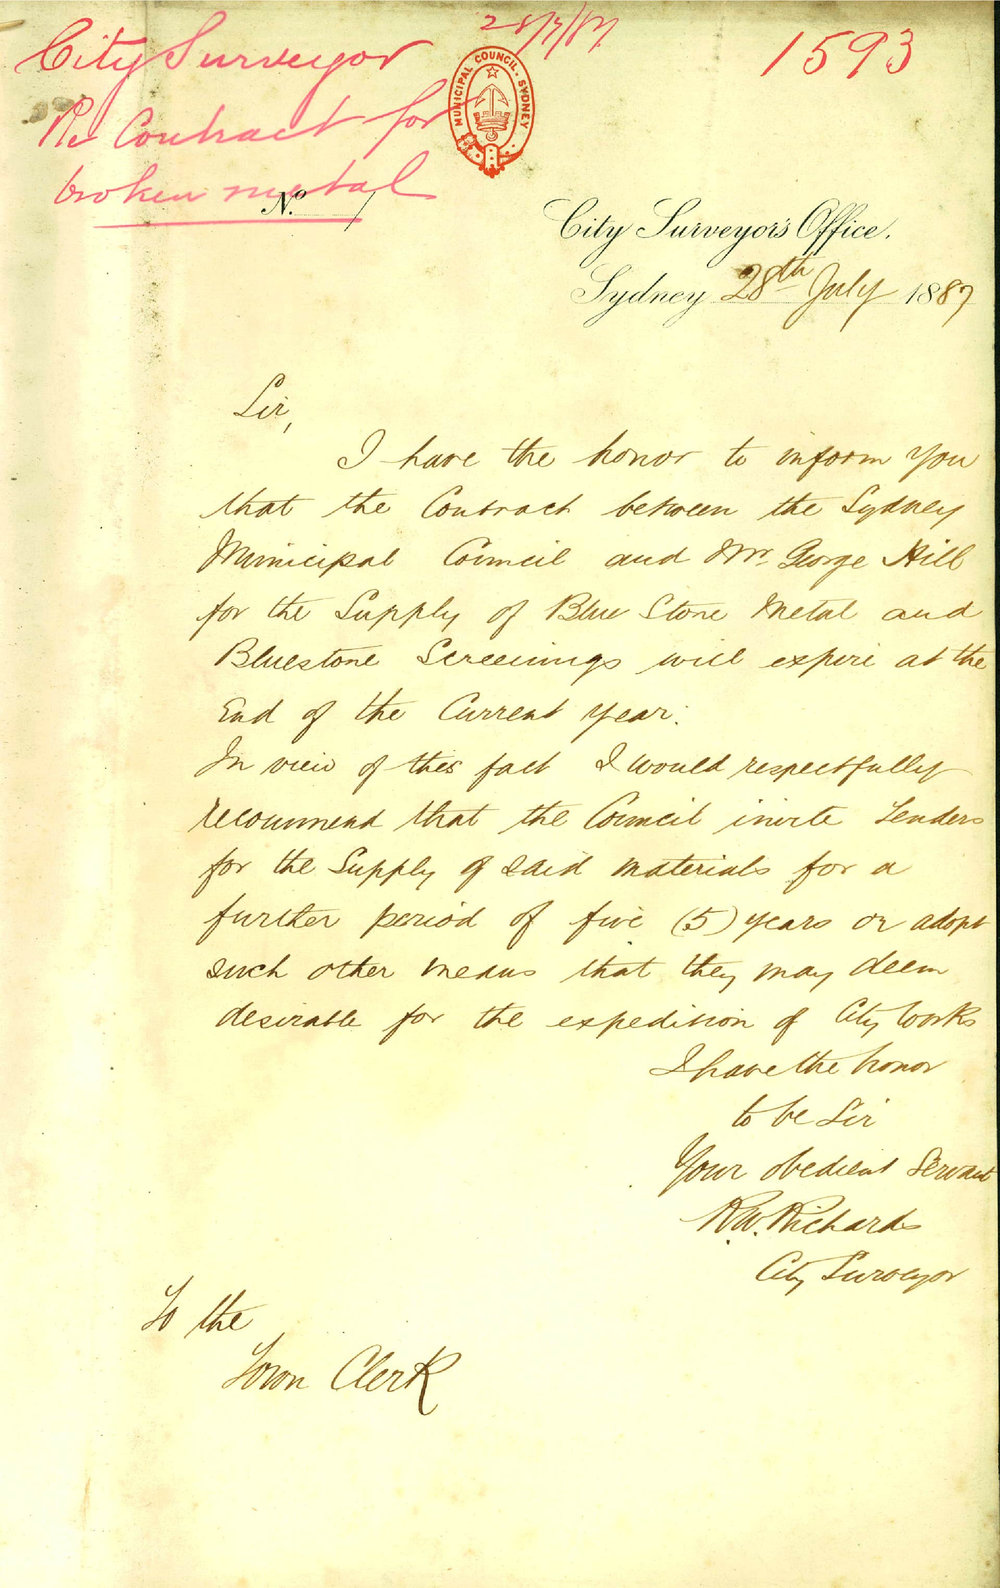 28/7/87
1593
City Surveyor
Re Contract for
broken metal
MUNICIPAL COUNCIL. SYDNEY
No. /
City Surveyor's Office.
Sydney 28th July 1887
Sir,
I have the honor to inform you
that the Contract between the Sydney
Municipal Council and Mr. George Hill
for the Supply of Blue Stone Metal and
Bluestone Screenings will expire at the
End of the Current year.
In view of this fact I would respectfully
recommend that the Council invite Tenders
for the Supply of said materials for a
further period of five (5) years or adopt
such other means that they may deem
desirable for the expedition of City Works
I have the honor
to be Sir
Your obedient Servant
R.W. Richards
City Surveyor
To the
Town Clerk